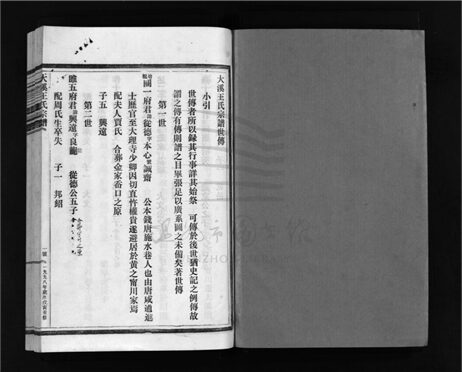 大溪王氏宗譜世傳
小引
世傳者所以録其行事詳其始祭 可傳於後世猶史記之例傳故
譜之傳有傳則譜之目畢張足以廣系圖之未備矣著世傳
第一世
國一府君諱從德字本心號誠齋 公本錢唐施水巷人也由唐咸通進
士歷官至大理寺少卿因切直忤權貴遂避居於黃之甯川家焉
配夫人賈氏 合葬金家嶴口之原
子五 興遠
第二世
贍五府君諱興遠字良 從德公五子
配周氏生卒失 子一 邦紹
大溪王氏宗譜
一號
一九九八年歲次戊寅重修